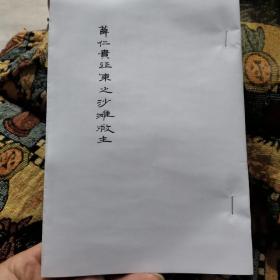 薛仁貴征東之沙灘救主